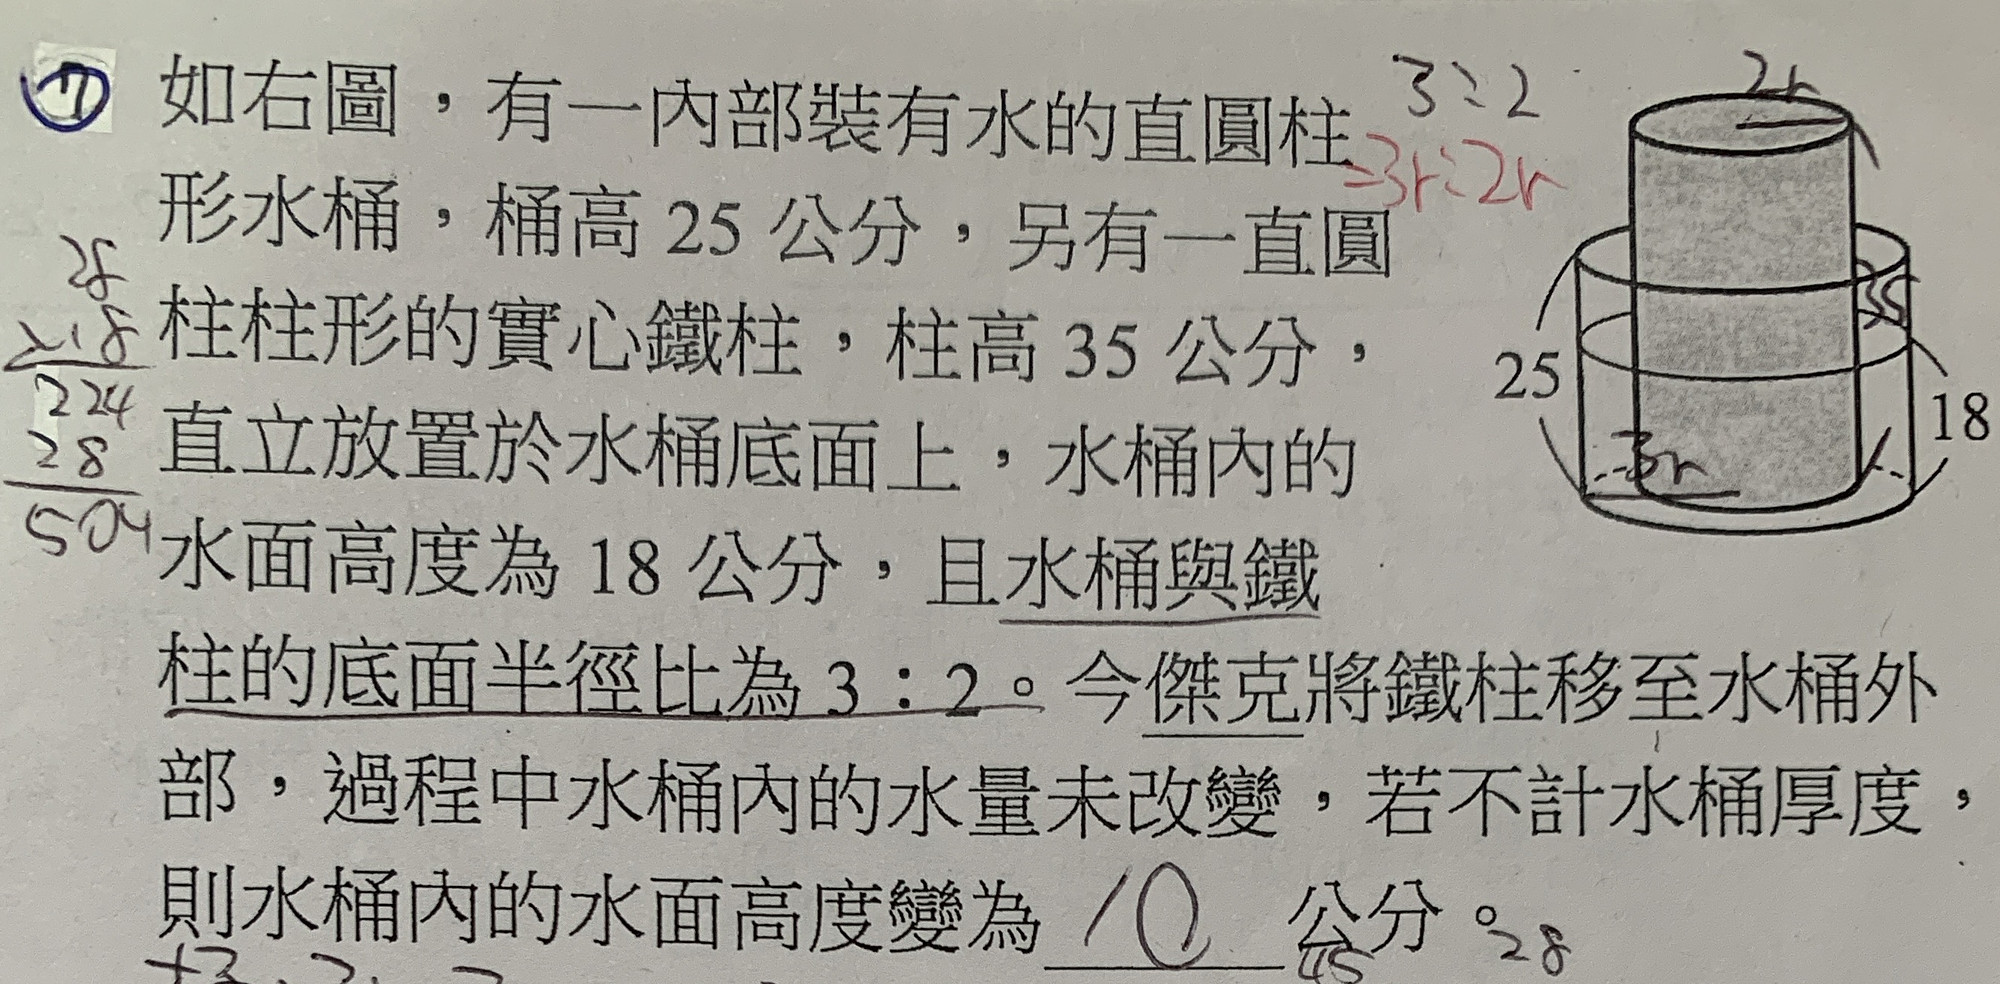 ⑦ 如右圖,有一內部裝有水的直圓柱
3:2
2r
=3r:2r
形水桶,桶高 25 公分,另有一直圓
28
柱柱形的實心鐵柱,柱高 35 公分,
×18
35
25
224
直立放置於水桶底面上,水桶內的
18
28
3r
504
水面高度為 18 公分,且水桶與鐵
柱的底面半徑比為 3:2。今傑克將鐵柱移至水桶外
部,過程中水桶內的水量未改變,若不計水桶厚度,
則水桶內的水面高度變為 10 公分。
28
45